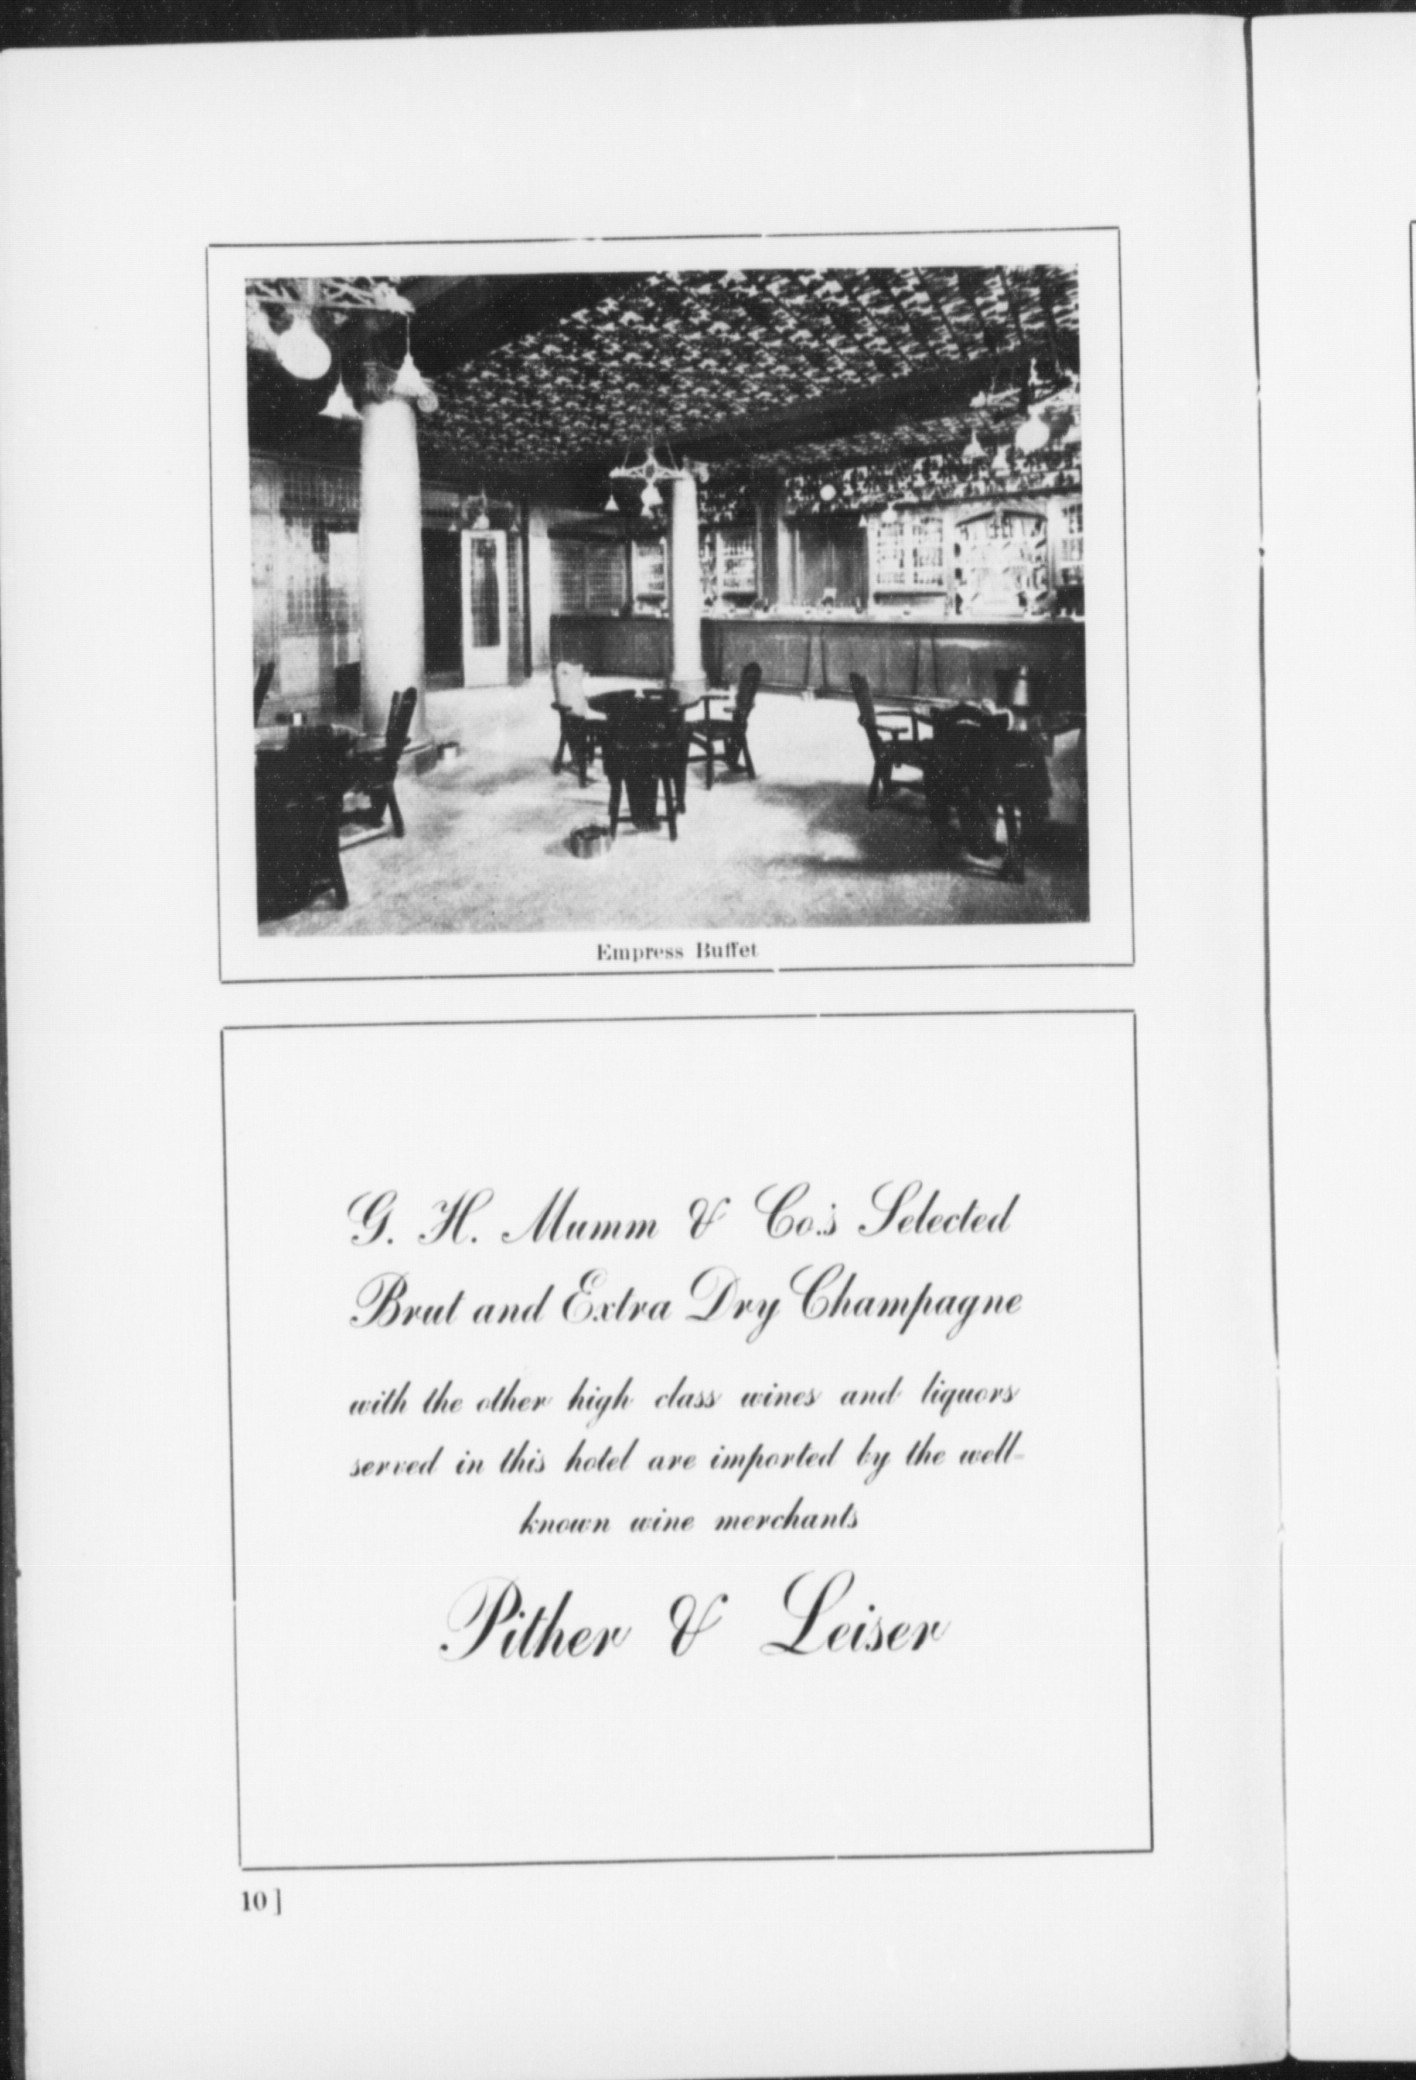 Empress Buffet
G. H. Mumm & Co.'s Selected
Brut and Extra Dry Champagne
with the other high class wines and liquors
served in this hotel are imported by the well-
known wine merchants
Pither & Leiser
10]